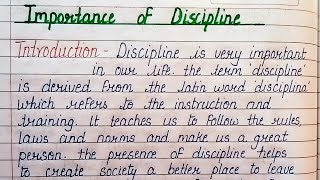 Importance of Discipline
Introduction - Discipline is very important
in our life. the term 'discipline'
is derived from the latin word disciplina'
which refers to the instruction and
training. It teaches us to follow the rules,
laws and norms and make us a great
person. the presence of discipline helps
to create society a better place to leave